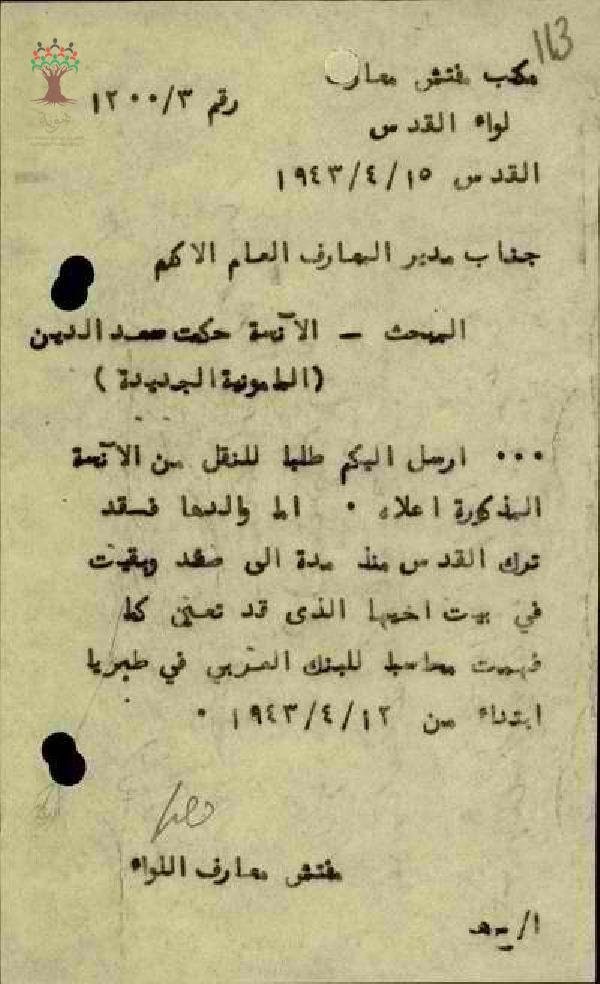 113
مكتب مفتش معارف
رقم ١٢٠٠/٣
لواء القدس
القدس ١٩٤٣/٤/١٥
جناب مدير المعارف العام الاكرم
المبحث - الآنسة حكمت سعد الدين
(المأمونية الجديدة)
... ارسل اليكم طلبا للنقل من الآنسة
المذكورة اعلاه . اما والدها فقد
ترك القدس منذ مدة الى صفد وبقيت
في بيت اخيها الذى قد تعين كما
فهمت محاسبا للبنك العربي في طبريا
ابتداء من ١٩٤٣/٤/١٢ .
مفتش معارف اللواء
هوية